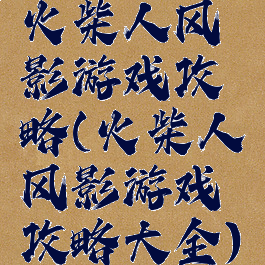 火柴人风
影游戏攻
略(火柴人
风影游戏
攻略大全)